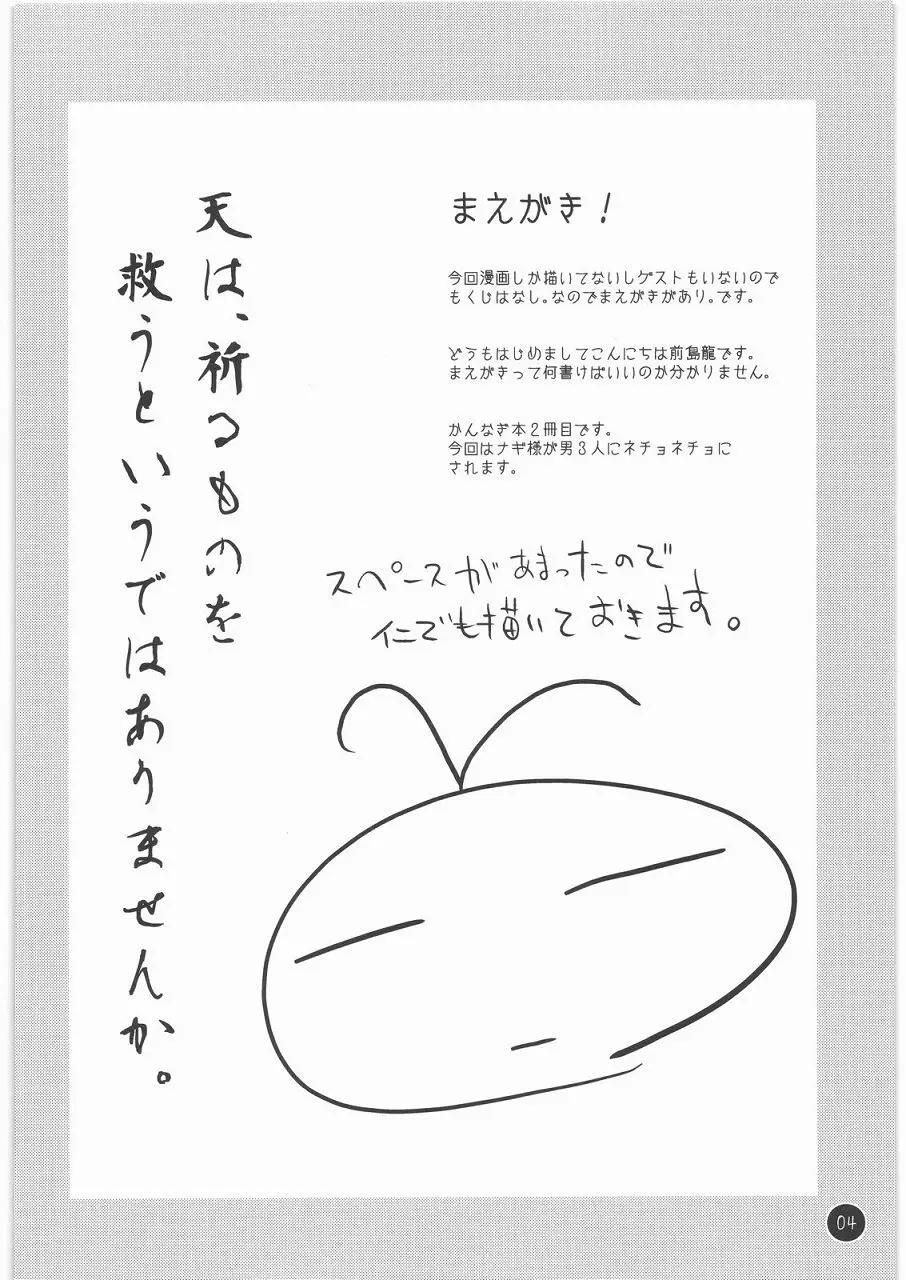 まえがき！
今回漫画しか描いてないしゲストもいないので
もくじはなし。なのでまえがきがあり。です。
どうもはじめましてこんにちは前島龍です。
まえがきって何書けばいいのか分かりません。
かんなぎ本２冊目です。
今回はナギ様が男３人にネチョネチョに
されます。
天は、祈るものを
救うというではありませんか。
スペースがあまったので
仁でも描いておきます。
04